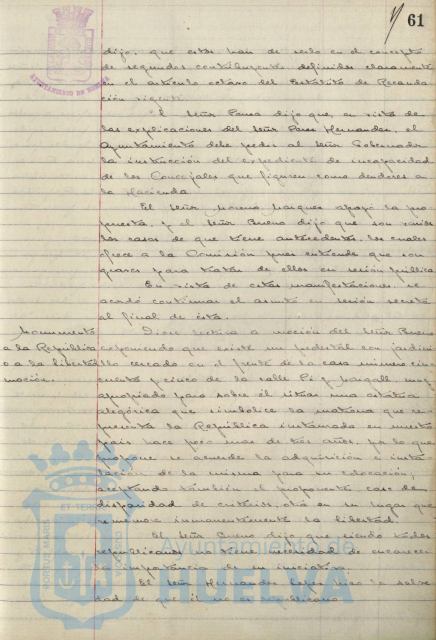 61
AYUNTAMIENTO DE HUELVA
dijo, que estos han de serlo en el concepto
de segundos contribuyentes definidos claramente
en el artículo octavo del Estatuto de Recauda
ción vigente.
El Señor Ponce dijo que, en vista de
las explicaciones del Señor Pérez Hernández, el
Ayuntamiento debe pedir al Señor Gobernador
la instrucción del expediente de incapacidad
de los Concejales que figuren como deudores a
la Hacienda.
El Señor Moreno Marquez apoyó la pro
puesta, y el Señor Bueno dijo que son
los casos de que tiene antecedentes, los cuales
ofrece a la Comisión pues entiende que son
graves para tratar de ellos en sesión pública
En vista de estas manifestaciones, se
acordó continuar el asunto en sesión secreta
al final de ésta.
Monumento
a la República
o a la libertad
moción.
Dióse lectura a moción del Señor Bueno
exponiendo que existe un pedestal con jardin
cillo cercado en el frente de la casa número cin
cuenta y cinco de la calle Pí y Margall, muy
apropiado para sobre él situar una estatua
alegórica que simbolice la matrona que re
presenta la República instaurada en nuestro
país hace poco mas de tres años, por lo que
propone se acuerde la adquisición e insta
lación de la misma para su colocación,
aceptando también el proponente caso de
disparidad de criterio, otra en su lugar que
la libertad.
El Señor Bueno dijo que siendo todos
republicanos no tiene necesidad de encarecer
la importancia de su iniciativa.
El Señor Hernández López hizo la salve
dad de que él no es republicano.
Ayuntamiento de
HUELVA
PORTUS MARIS
ET TERRAE
CUSTODIA